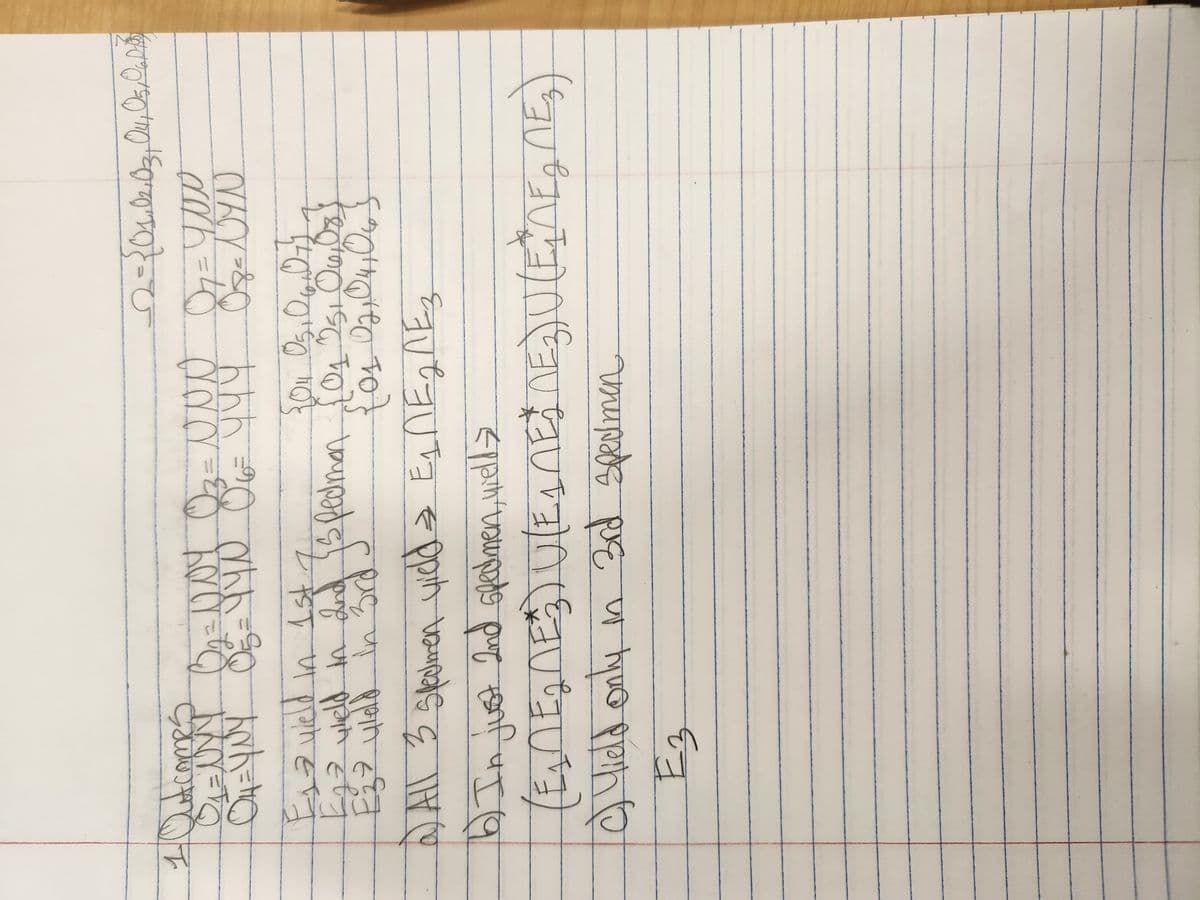 Ω={O1,O2,O3,O4,O5,O6,O7,O8}
1 Outcomes
O1=NYY O2=NNY O3=NNN O7=YNN
O4=YNY O5=YYN O6=YYY O8=NYN
E1→ yield in 1st } {O4 O5,O6,O7}
E2→ yield in 2nd } Specimen {O1 O5, O6,O8}
E3→ yield in 3rd } {O1 O2,O4,O6}
a) All 3 specimen yield ⇒ E1∩E2∩E3
b) In just 2nd specimen, yield⇒
(E1∩E2∩E3*)∪(E1∩E2*∩E3)∪(E1*∩E2∩E3)
c) Yield only in 3rd specimen
E3